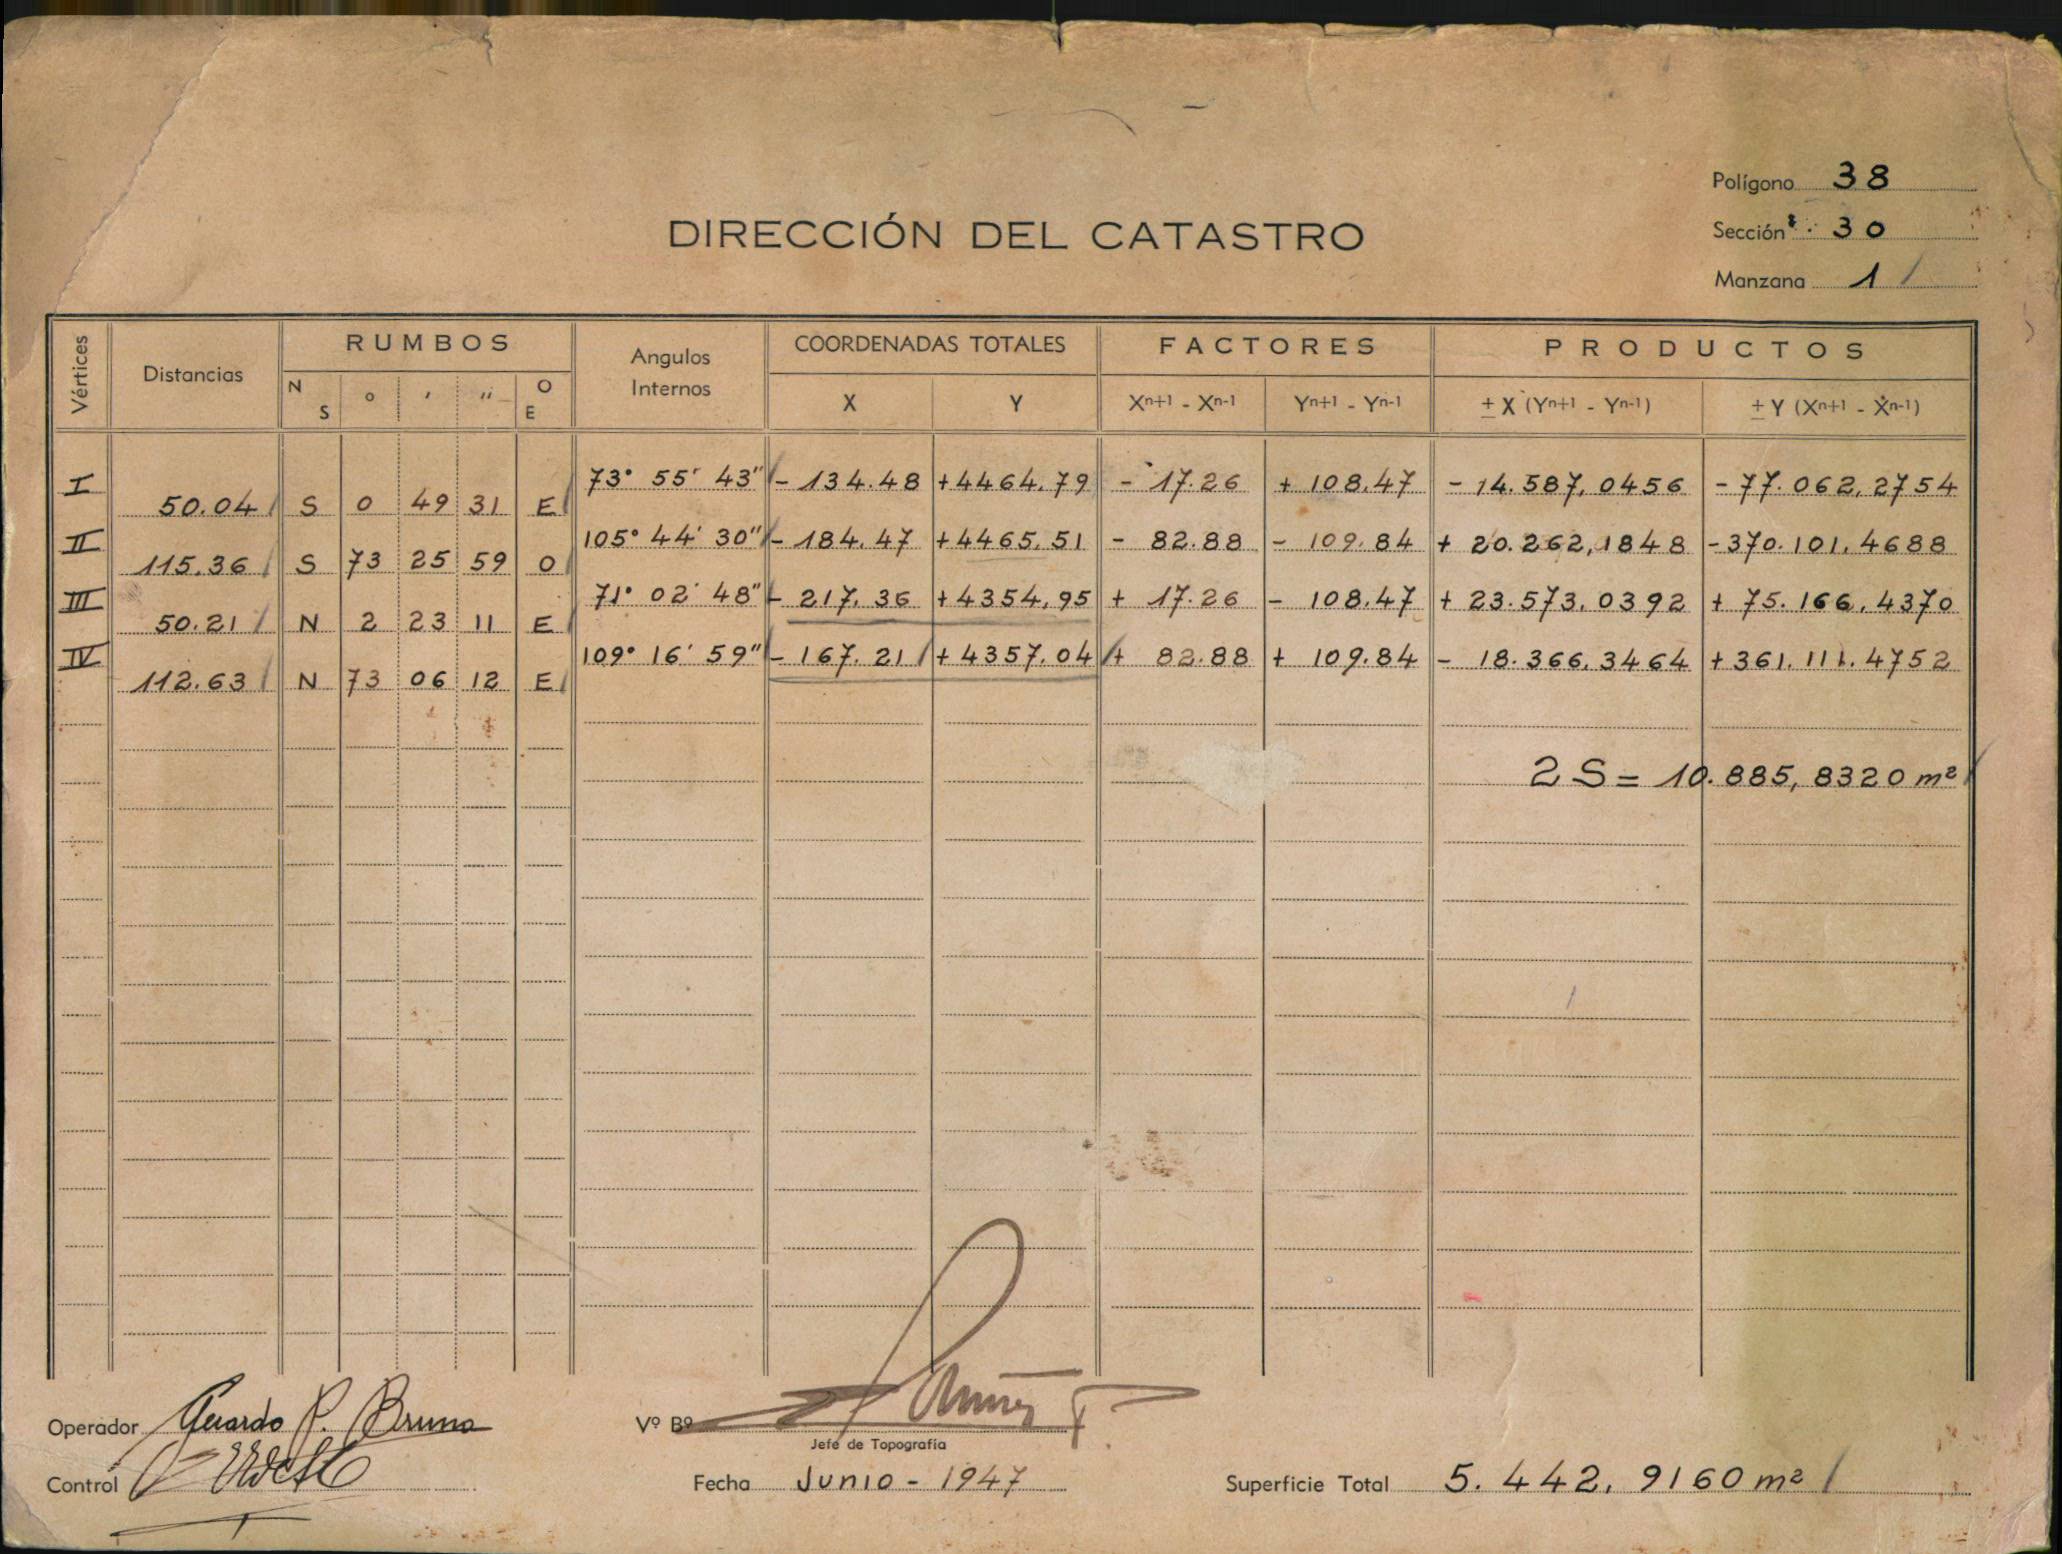 Polígono 38
DIRECCIÓN DEL CATASTRO
Sección 30
Manzana 1
Vértices Distancias RUMBOS Angulos Internos COORDENADAS TOTALES FACTORES PRODUCTOS
N S ° ' " O E X Y Xn+1 - Xn-1 Yn+1 - Yn-1 ± X (Yn+1 - Yn-1) ± Y (Xn+1 - Xn-1)
I 73° 55' 43" - 134.48 +4464.79 - 17.26 + 108.47 - 14.587,0456 - 77.062,2754
50.04 S 0 49 31 E
II 105° 44' 30" - 184.47 +4465.51 - 82.88 - 109.84 + 20.262,1848 - 370.101.4688
115.36 S 73 25 59 O
III 71° 02' 48" - 217.36 +4354,95 + 17.26 - 108.47 + 23.573.0392 + 75.166.4370
50.21 N 2 23 11 E
IV 109° 16' 59" - 167.21 + 4357.04 + 82.88 + 109.84 - 18.366.3464 + 361.111.4752
112.63 N 73 06 12 E
2 S = 10.885,8320 m²
Operador Gerardo P. Bruno
Vº Bº
Jefe de Topografía
Control
Fecha Junio - 1947
Superficie Total 5.442.9160 m²